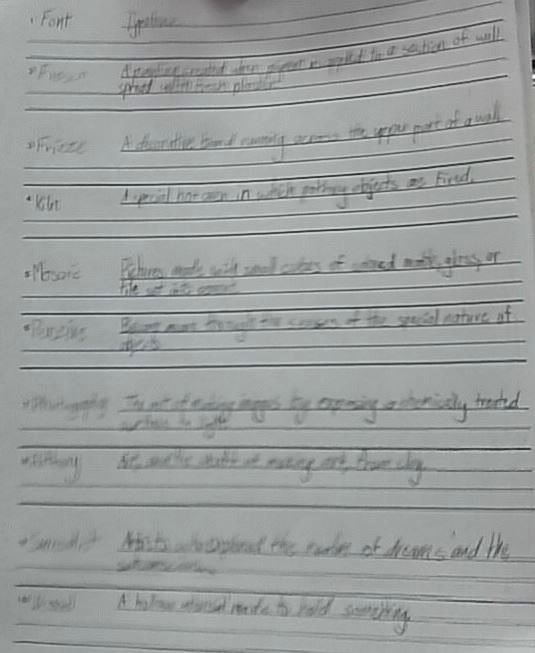 • Font Typeface
• Fresco A painting created when pigment is applied to a section of wall
spread with fresh plaster
• Frieze A decorative band running across the upper part of a wall
• Kiln A special hot oven in which pottery objects are fired.
• Mosaic Pictures made with small cubes of colored marble, glass, or
tile set into cement
Become aware through the senses of the special nature of
objects
• Photography The art of making images by exposing a chemically treated
surface to light
• Pottery Art, and the craft of making art, from clay
• Surrealist Artists who explored the realm of dreams and the
• Vessel A hollow utensil made to hold something